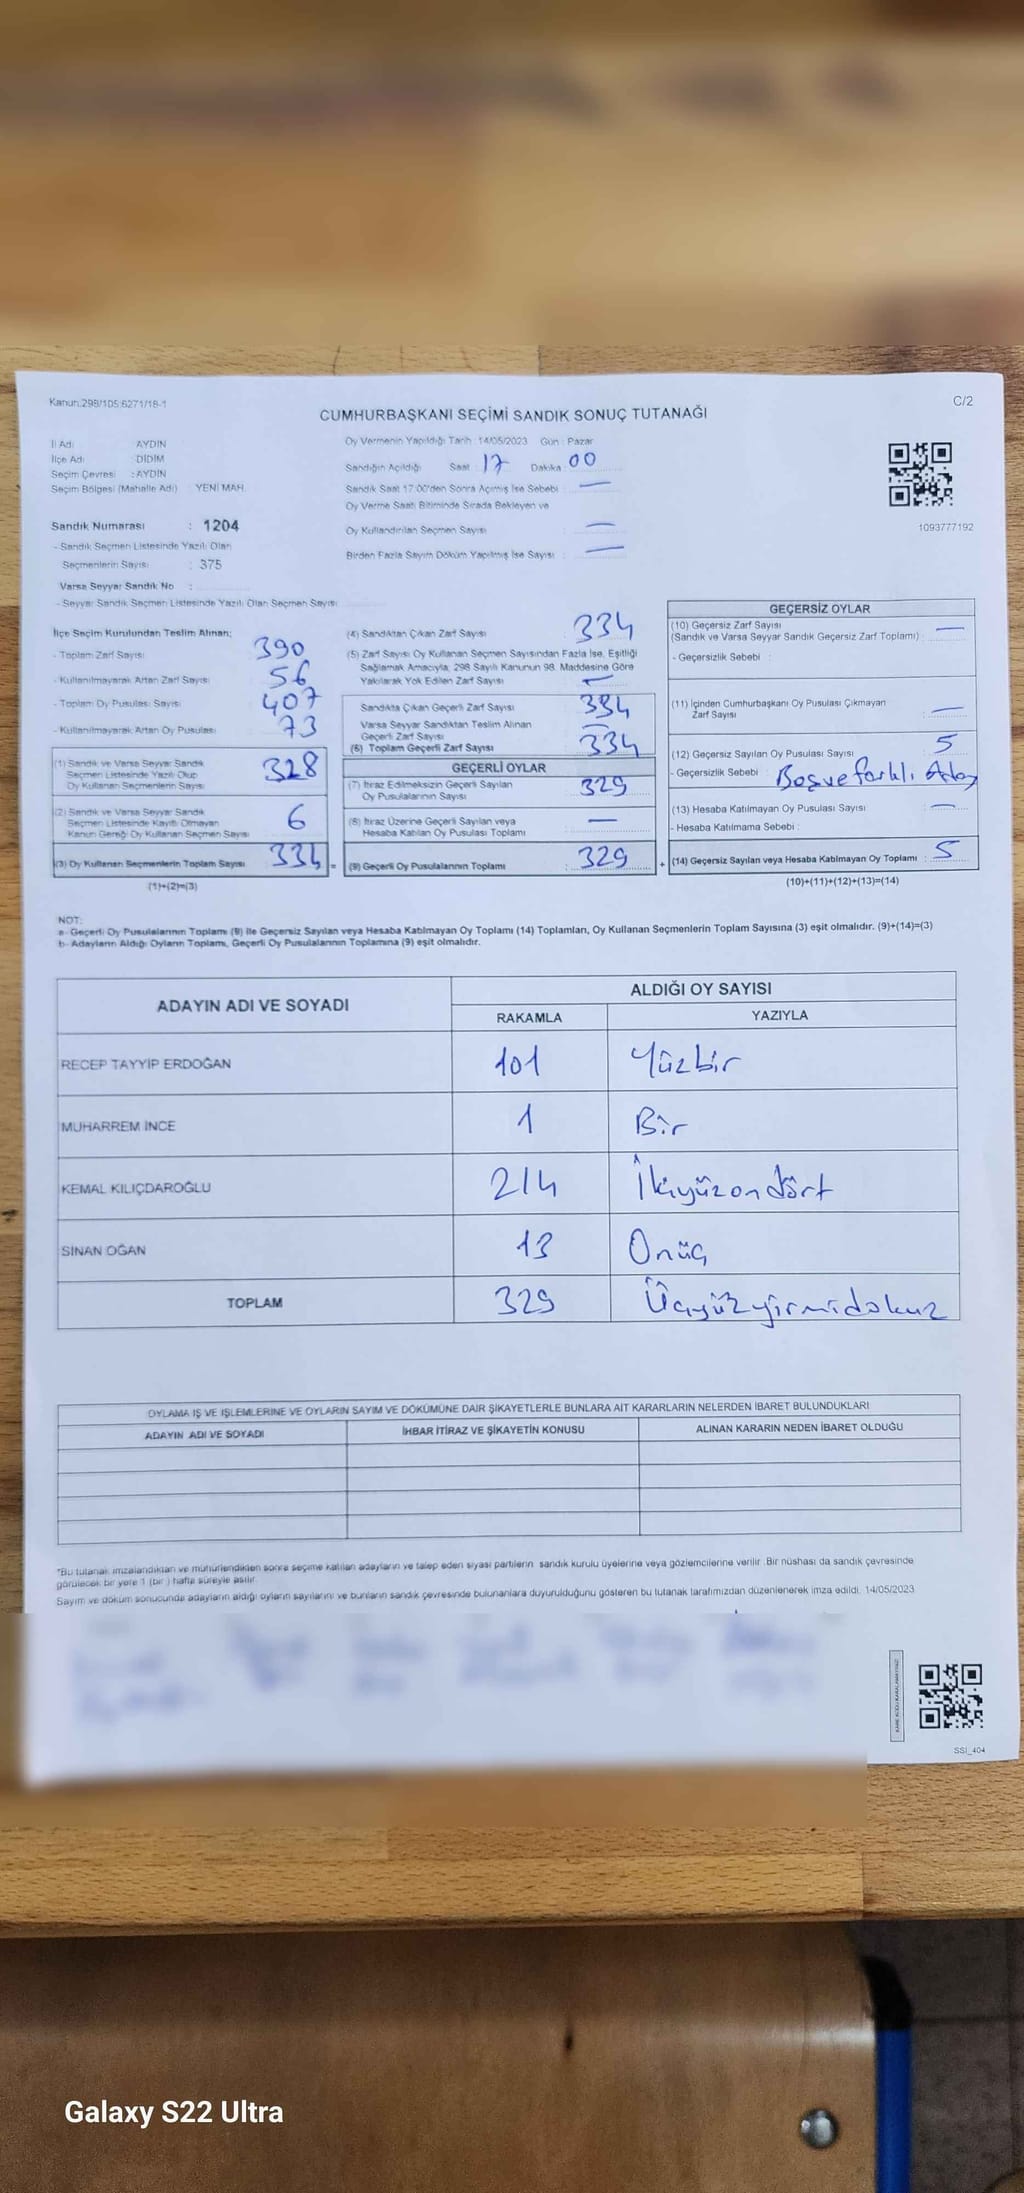 Kanun.298/105:6271/18-1
C/2
CUMHURBAŞKANI SEÇİMİ SANDIK SONUÇ TUTANAĞI
İl Adı : AYDIN
İlçe Adı : DİDİM
Seçim Çevresi : AYDIN
Seçim Bölgesi (Mahalle Adı) : YENİ MAH.
Oy Vermenin Yapıldığı Tarih : 14/05/2023 Gün : Pazar
Sandığın Açıldığı Saat 17 Dakika 00
Sandık Saat 17:00'den Sonra Açılmış İse Sebebi : —
Oy Verme Saati Bitiminde Sırada Bekleyen ve
Oy Kullandırılan Seçmen Sayısı : —
Birden Fazla Sayım Döküm Yapılmış İse Sayısı : —
1093777192
Sandık Numarası : 1204
- Sandık Seçmen Listesinde Yazılı Olan
Seçmenlerin Sayısı : 375
Varsa Seyyar Sandık No :
- Seyyar Sandık Seçmen Listesinde Yazılı Olan Seçmen Sayısı
İlçe Seçim Kurulundan Teslim Alınan;
- Toplam Zarf Sayısı 390
- Kullanılmayarak Artan Zarf Sayısı 56
- Toplam Oy Pusulası Sayısı 407
- Kullanılmayarak Artan Oy Pusulası 73
(1) Sandık ve Varsa Seyyar Sandık
Seçmen Listesinde Yazılı Olup
Oy Kullanan Seçmenlerin Sayısı 328
(2) Sandık ve Varsa Seyyar Sandık
Seçmen Listesinde Kayıtlı Olmayan
Kanun Gereği Oy Kullanan Seçmen Sayısı 6
(3) Oy Kullanan Seçmenlerin Toplam Sayısı 334 =
(1)+(2)=(3)
(4) Sandıktan Çıkan Zarf Sayısı 334
(5) Zarf Sayısı Oy Kullanan Seçmen Sayısından Fazla İse, Eşitliği
Sağlamak Amacıyla, 298 Sayılı Kanunun 98. Maddesine Göre
Yakılarak Yok Edilen Zarf Sayısı —
Sandıkta Çıkan Geçerli Zarf Sayısı 334
Varsa Seyyar Sandıktan Teslim Alınan
Geçerli Zarf Sayısı —
(6) Toplam Geçerli Zarf Sayısı 334
GEÇERLİ OYLAR
(7) İtiraz Edilmeksizin Geçerli Sayılan
Oy Pusulalarının Sayısı : 329
(8) İtiraz Üzerine Geçerli Sayılan veya
Hesaba Katılan Oy Pusulası Toplamı : —
(9) Geçerli Oy Pusulalarının Toplamı : 329 +
GEÇERSİZ OYLAR
(10) Geçersiz Zarf Sayısı
(Sandık ve Varsa Seyyar Sandık Geçersiz Zarf Toplamı) : —
- Geçersizlik Sebebi :
(11) İçinden Cumhurbaşkanı Oy Pusulası Çıkmayan
Zarf Sayısı : —
(12) Geçersiz Sayılan Oy Pusulası Sayısı : 5
- Geçersizlik Sebebi : Boş ve farklı Aday
(13) Hesaba Katılmayan Oy Pusulası Sayısı : —
- Hesaba Katılmama Sebebi :
(14) Geçersiz Sayılan veya Hesaba Katılmayan Oy Toplamı : 5
(10)+(11)+(12)+(13)=(14)
NOT:
a- Geçerli Oy Pusulalarının Toplamı (9) ile Geçersiz Sayılan veya Hesaba Katılmayan Oy Toplamı (14) Toplamları, Oy Kullanan Seçmenlerin Toplam Sayısına (3) eşit olmalıdır. (9)+(14)=(3)
b- Adayların Aldığı Oyların Toplamı, Geçerli Oy Pusulalarının Toplamına (9) eşit olmalıdır.
ADAYIN ADI VE SOYADI
ALDIĞI OY SAYISI
RAKAMLA YAZIYLA
RECEP TAYYİP ERDOĞAN 101 Yüzbir
MUHARREM İNCE 1 Bir
KEMAL KILIÇDAROĞLU 214 İkiyüzondört
SİNAN OĞAN 13 Onüç
TOPLAM 329 Üçyüzyirmidokuz
OYLAMA İŞ VE İŞLEMLERİNE VE OYLARIN SAYIM VE DÖKÜMÜNE DAİR ŞİKAYETLERLE BUNLARA AİT KARARLARIN NELERDEN İBARET BULUNDUKLARI
ADAYIN ADI VE SOYADI İHBAR İTİRAZ VE ŞİKAYETİN KONUSU ALINAN KARARIN NEDEN İBARET OLDUĞU
*Bu tutanak imzalandıktan ve mühürlendikten sonra seçime katılan adayların ve talep eden siyasi partilerin sandık kurulu üyelerine veya gözlemcilerine verilir. Bir nüshası da sandık çevresinde
görülecek bir yere 1 (bir) hafta süreyle asılır.
Sayım ve döküm sonucunda adayların aldığı oyların sayılarını ve bunların sandık çevresinde bulunanlara duyurulduğunu gösteren bu tutanak tarafımızdan düzenlenerek imza edildi. 14/05/2023
SSI_404
Galaxy S22 Ultra